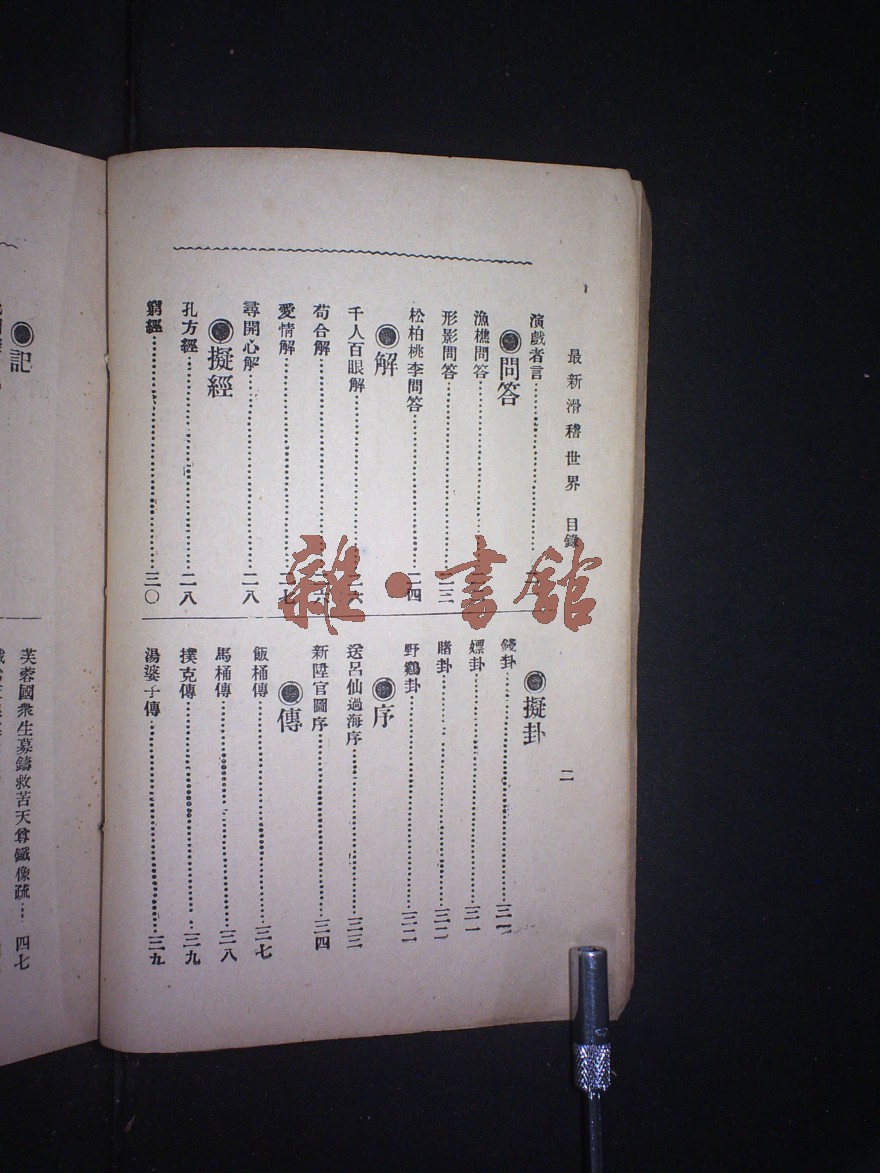 最新滑稽世界 目錄
二
演戲者言
●問答
漁樵問答
形影問答
松柏桃李問答
●解
千人百眼解
苟合解
愛情解
尋開心解 二八
●擬經
孔方經 二八
窮經 三〇
●擬卦
錢卦
嫖卦 三一
賭卦 三二
野鷄卦 三二
●序
送呂仙過海序 三三
新陞官圖序 三四
●傳
飯桶傳 三七
馬桶傳 三八
撲克傳 三九
湯婆子傳 三九
●記
芙蓉國衆生募鑄救苦天尊鐵像疏 四七
雜·書館